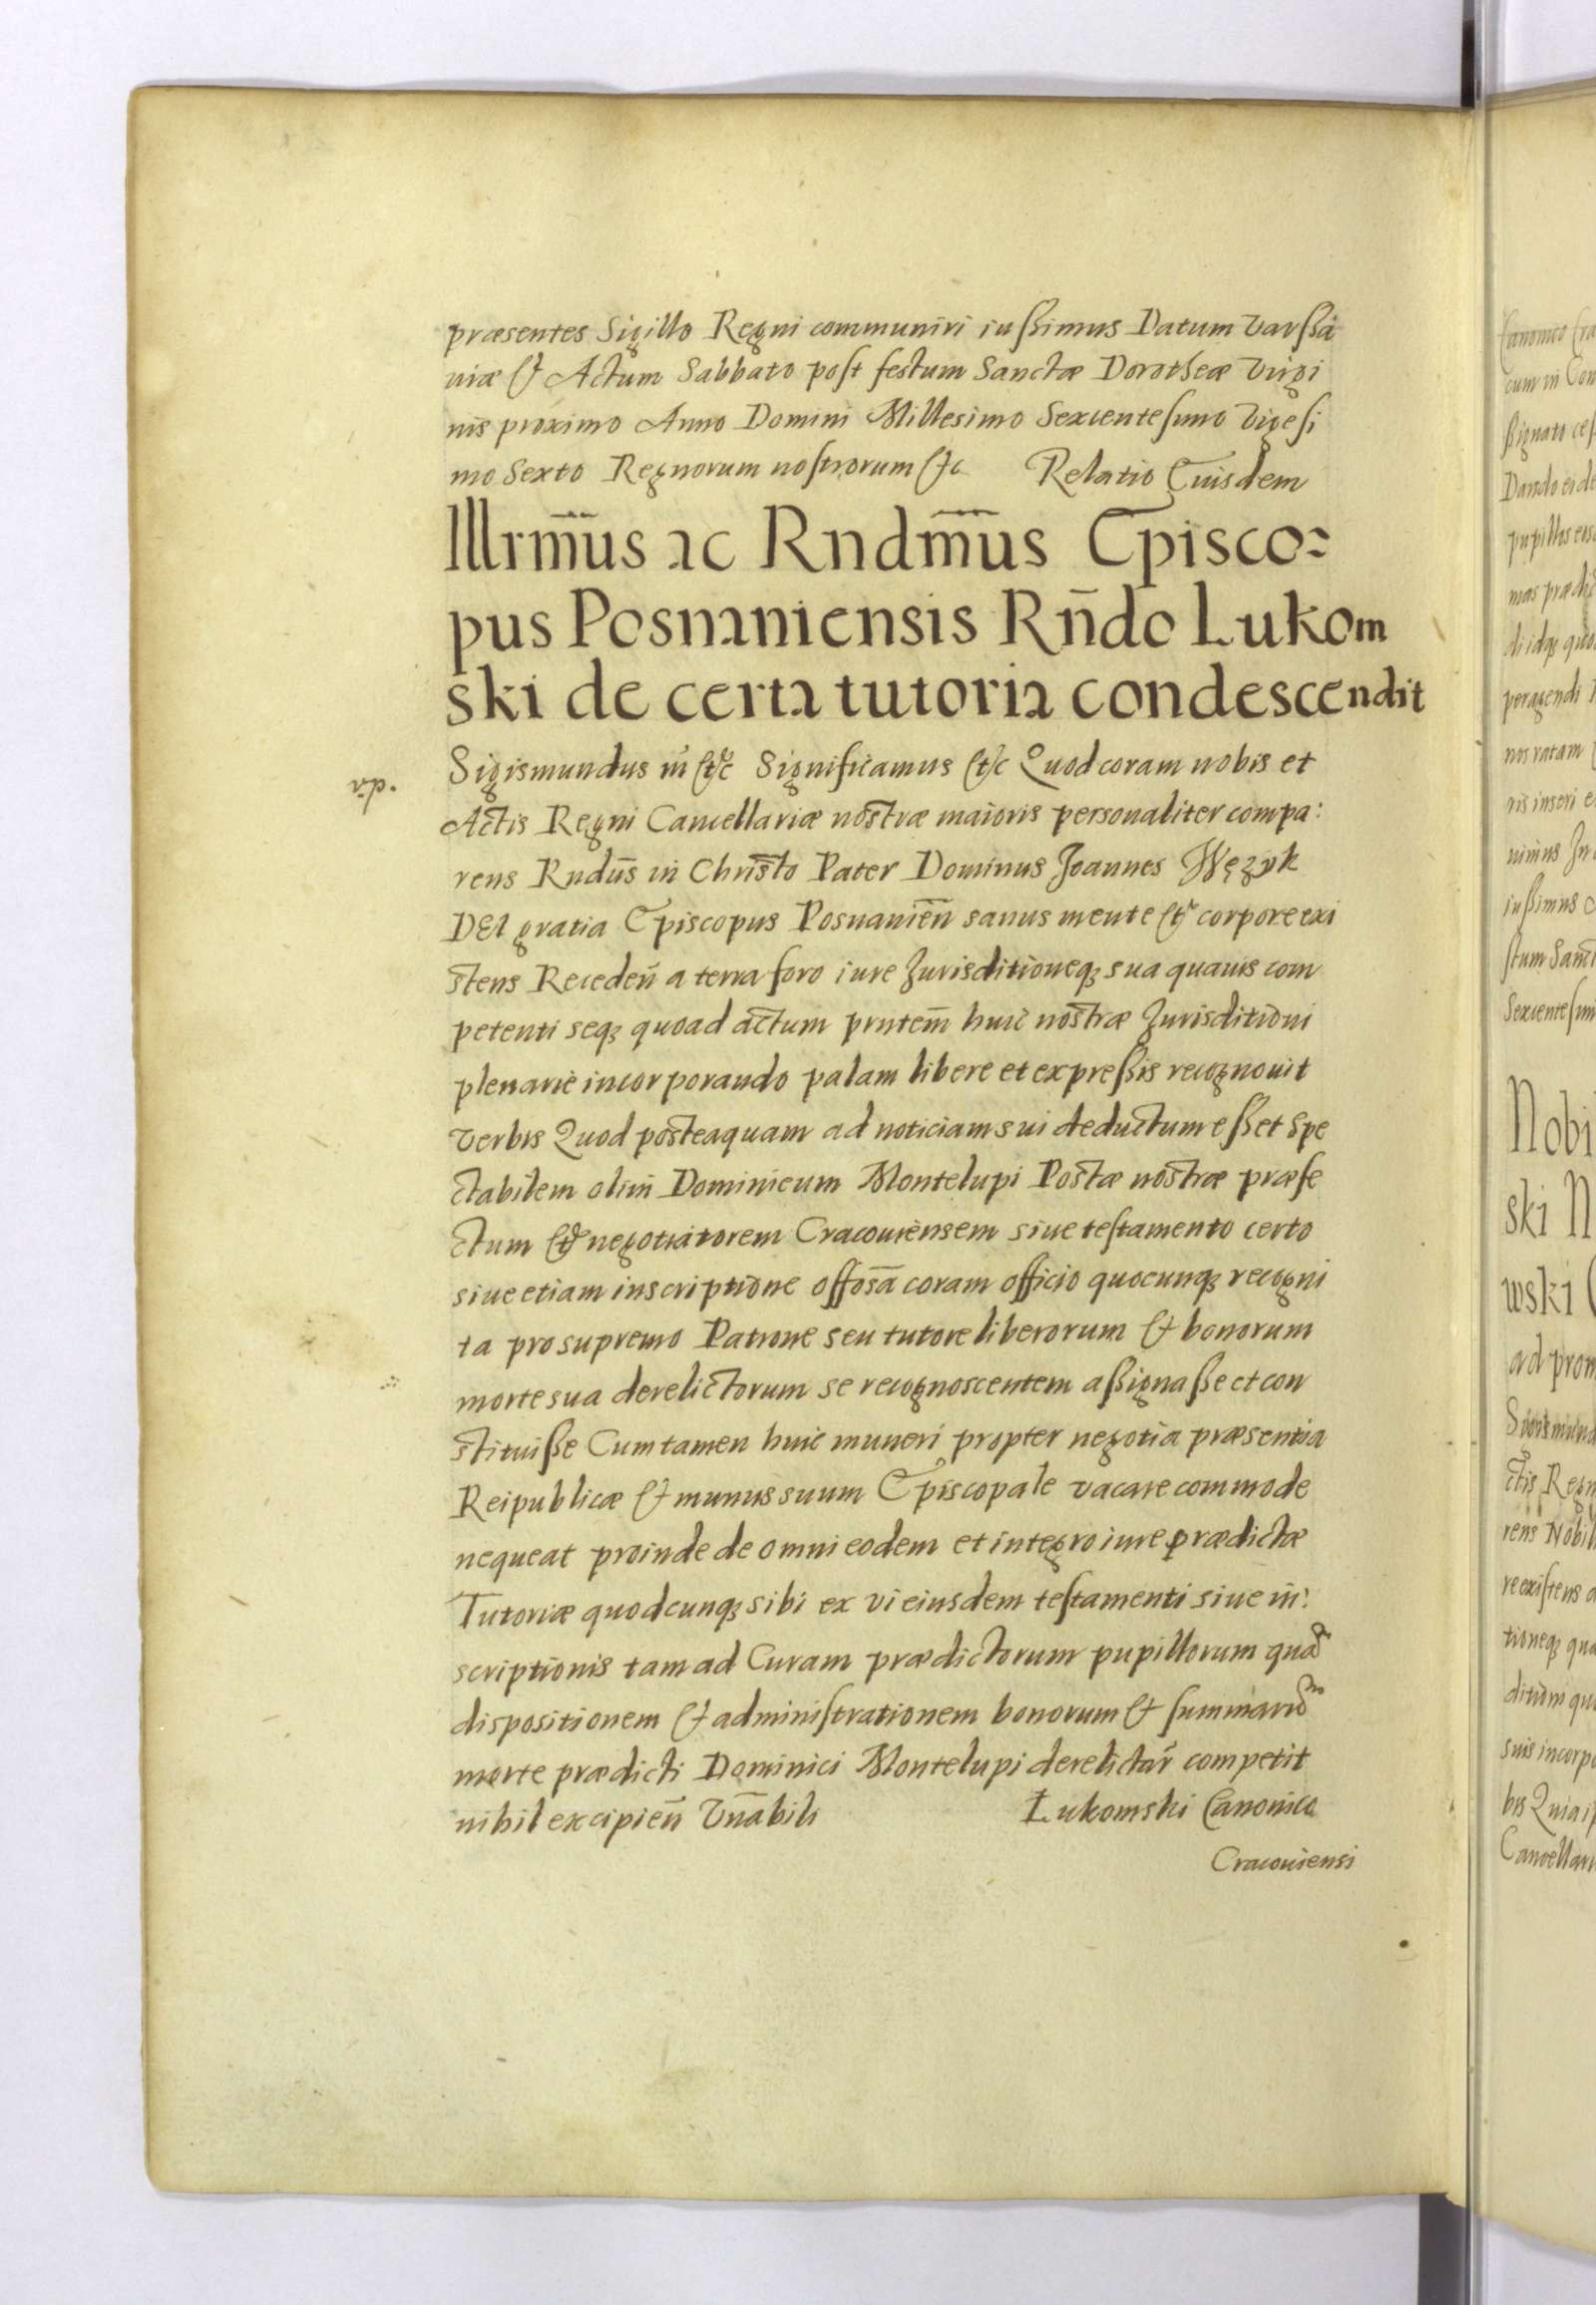 præsentes Sigillo Regni communiri iussimus Datum Varssa
uiæ & Actum Sabbato post festum Sanctæ Dorotheæ Virgi
nis proximo Anno Domini Millesimo Sexcentesimo Vigesi
mo Sexto Regnorum nostrorum &c Relatio Eiusdem
Illrm̃us ac Rndm̃us Episco:
pus Posnaniensis Rñdo Lukom
ski de certa tutoria condescendit
da.
Sigismundus iii &c Significamus &c Quod coram nobis et
Actis Regni Cancellariæ nostræ maioris personaliter compa:
rens Rndūs in Christo Pater Dominus Joannes Wężyk
DEI gratia Episcopus Posnanien̄ sanus mente & corpore exi
stens Receden̄ a terra foro iure Jurisditioneq; sua quauis com
petenti seq; quoad actum prntem̄ huic nostræ Jurisditioni
plenarie incorporando palam libere et expressis recognouit
verbis Quod posteaquam ad noticiam sui deductum esset Spe
ctabilem olim Dominicum Montelupi Postæ nostræ præfe
ctum & negotiatorem Cracouiensem siue testamento certo
siue etiam inscriptione offosā coram officio quocunq; recogni
ta pro supremo Patrone seu tutore liberorum & bonorum
morte sua derelictorum se recognoscentem assignasse et con
stituisse Cum tamen huic muneri propter negotia præsentia
Reipublicæ & munus suum Episcopale vacare commode
nequeat proinde de omni eodem et integro iure prædictæ
Tutoriæ quodcunq; sibi ex vi eiusdem testamenti siue in:
scriptionis tam ad Curam prædictorum pupillorum quā
dispositionem & administrationem bonorum & summarū
morte prædicti Dominici Montelupi derelictar̄ competit
nihil excipien̄ Vn̄abili Łukomski Canonico
Cracouiensi